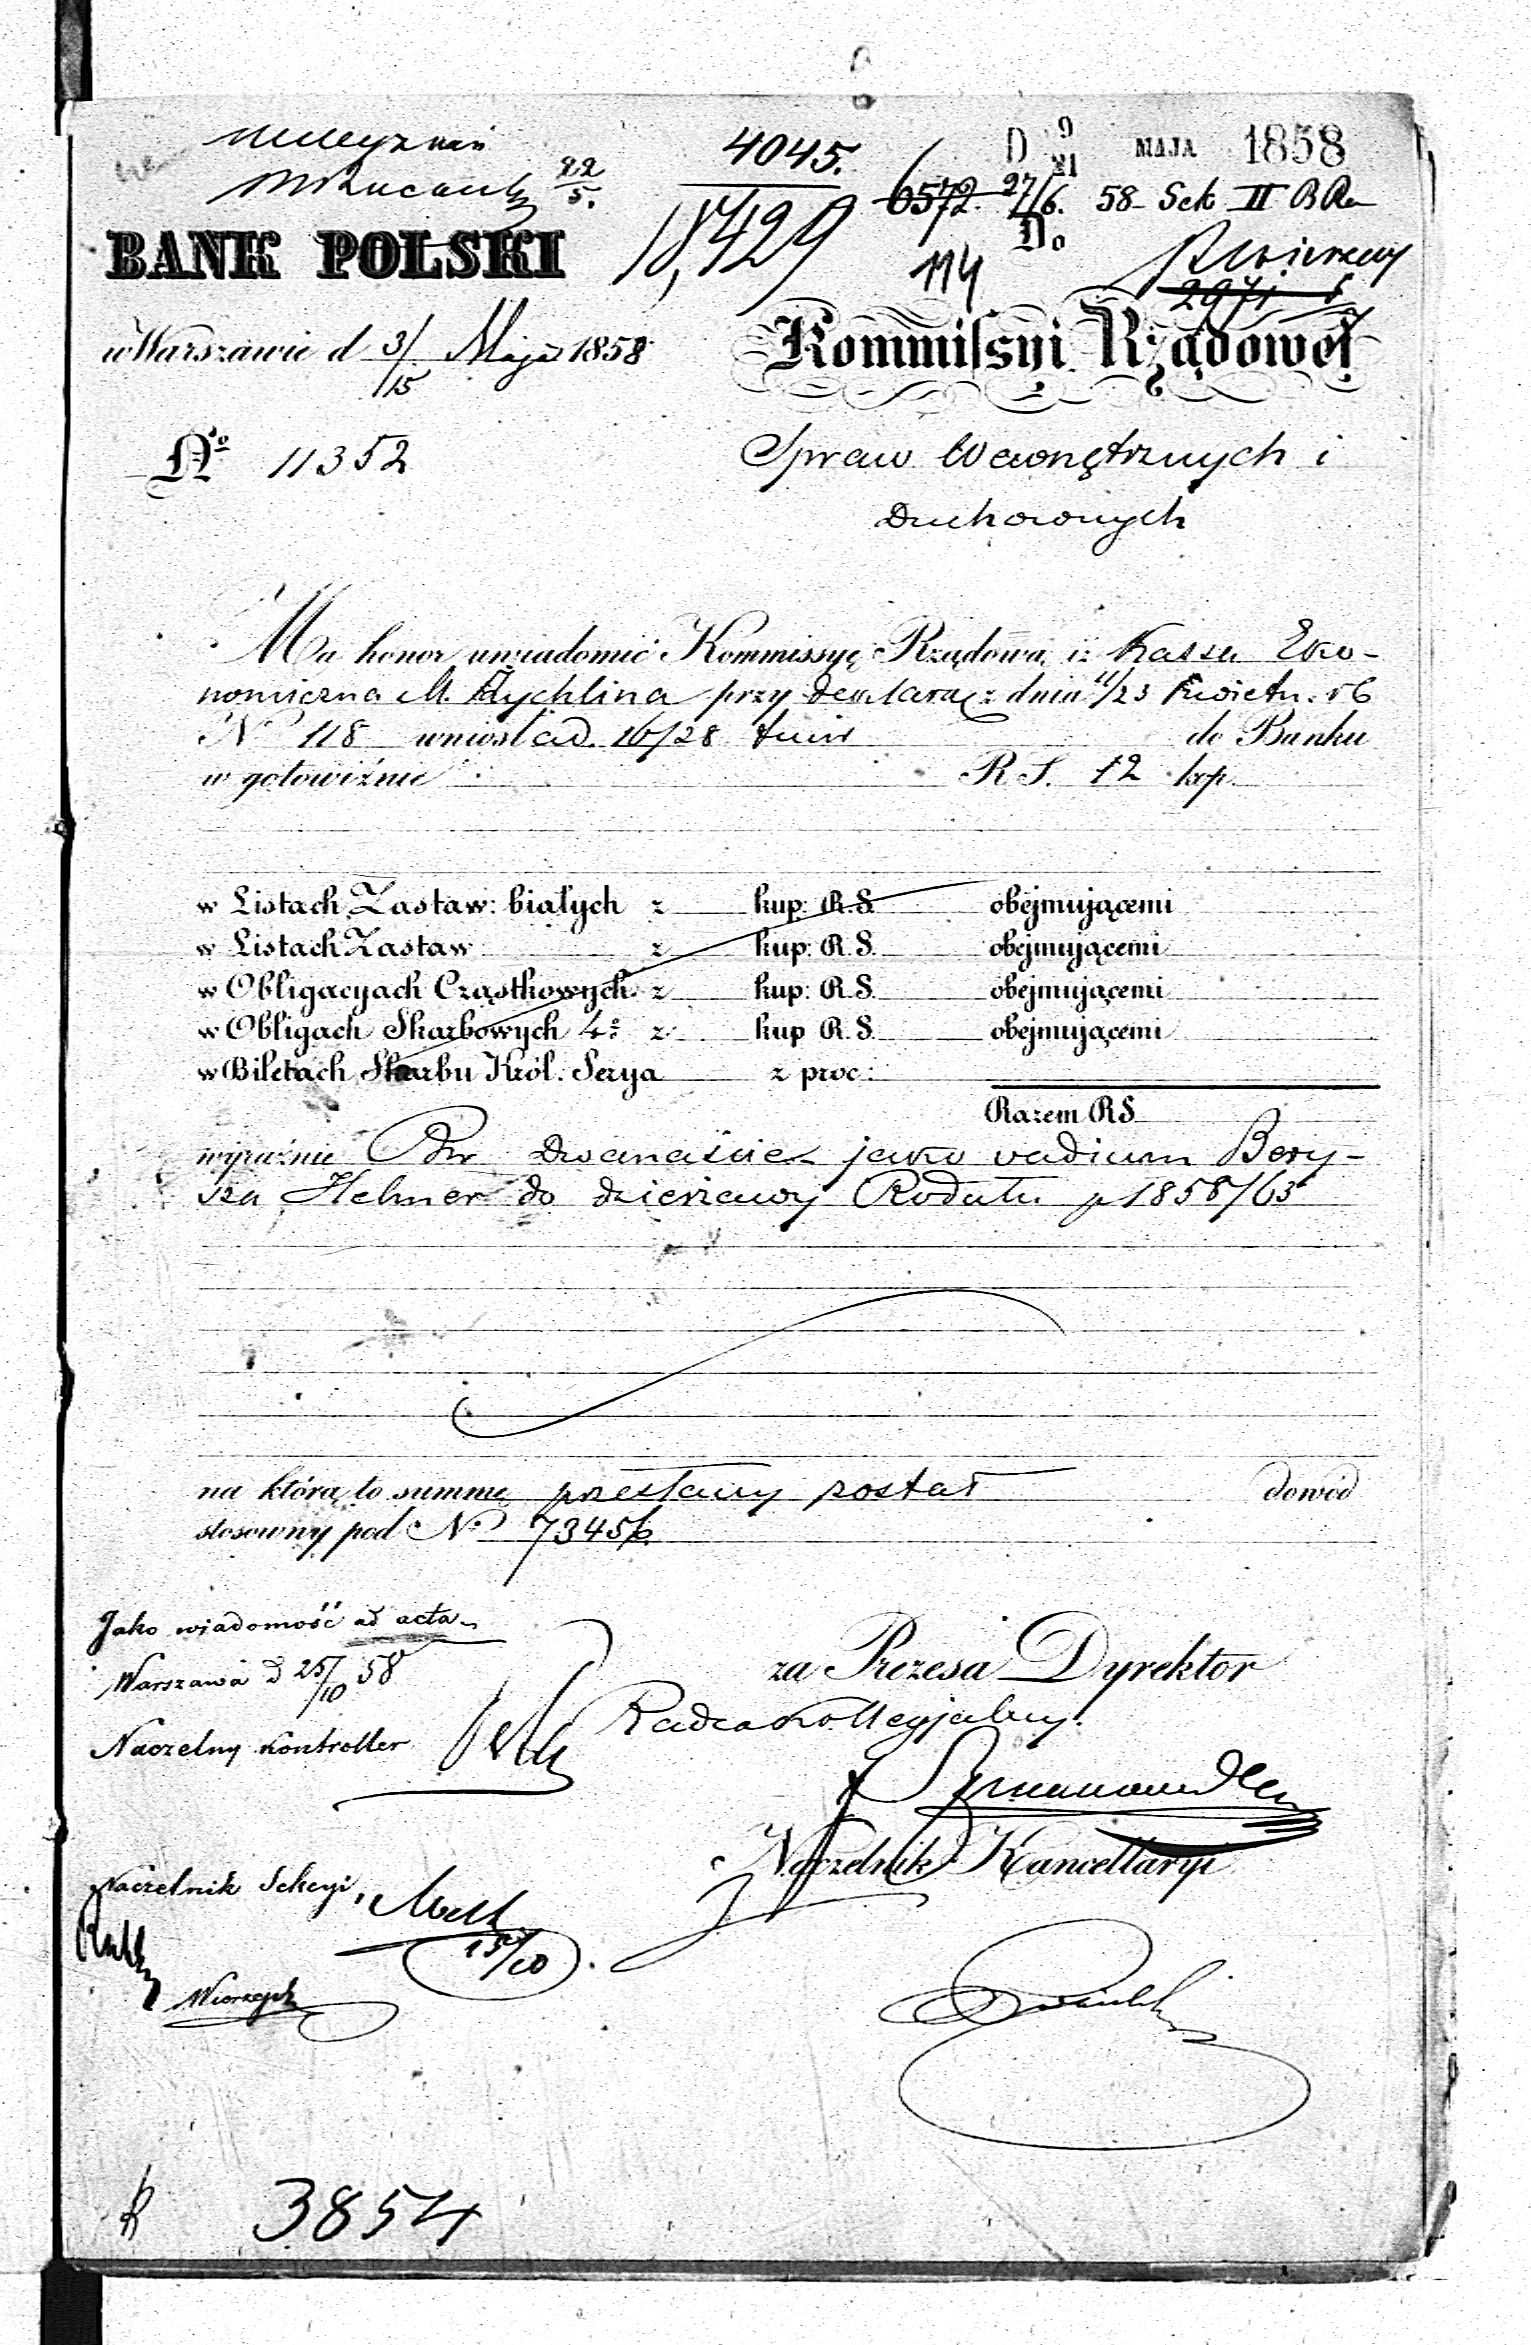 4045.
D 9/21 MAJA 1858
22/5.
6572. 27/6. 58 Sek II B
18,429
Do
114
BANK POLSKI
2971
w Warszawie d 3/15 Maja 1858
Kommissyi Rządowej
No 11352
Spraw Wewnętrznych i
Duchownych
Ma honor uwiadomić Kommissyę Rządową, iż Kassa Eko-
nomiczna M. Żychlina przy deklarac z dnia 11/23 Kwietn. rb
No 118 wniosła d. 16/28 do Banku
w gotowiźnie R S. 12 kop.
w Listach Zastaw: białych z kup: R.S. obejmującemi
w Listach Zastaw z kup: R.S. obejmującemi
w Obligacyach Cząstkowych z kup: R.S. obejmującemi
w Obligach Skarbowych 4o z kup R.S. obejmującemi
w Biletach Skarbu Król. Serya z proc:
Razem RS
wyraźnie Rsr dwanaście jako vadium Bery-
sza Helmer do dzierżawy p 1858/63
na którą to summę przesłany został dowód
stosowny pod No 73456.
Jako wiadomość ad acta
Warszawa d 25/10 58
za Prezesa Dyrektor
Radca Kollegjalny.
Naczelny Kontroller
Naczelnik Kancellaryi
Naczelnik Sekcyi
15/10
3854